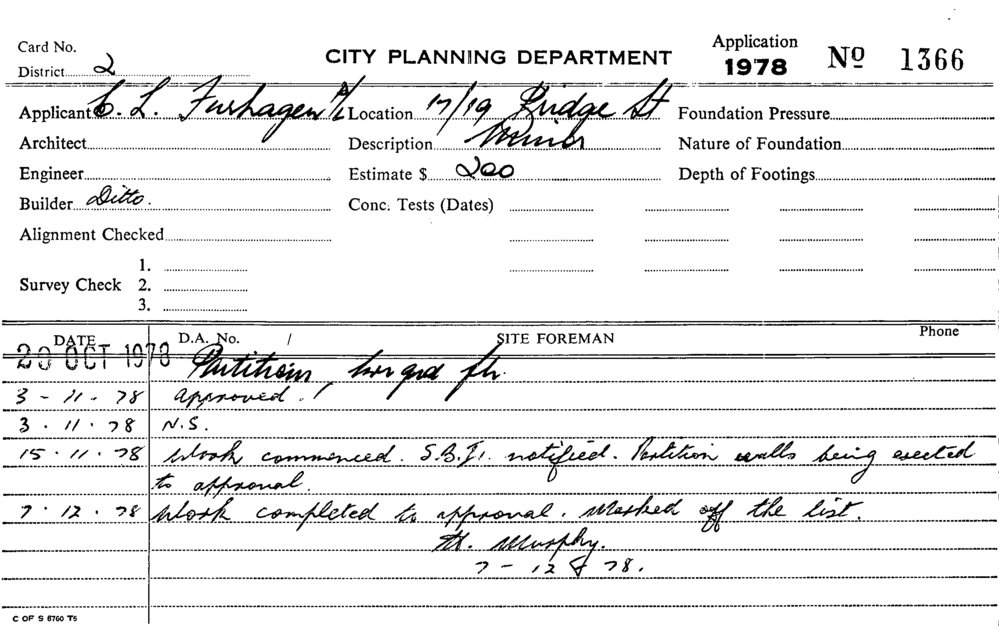 Card No.
District 2
CITY PLANNING DEPARTMENT
Application
1978
Nº 1366
Applicant C. L. Furhagen P/L Location 17/19 Bridge St Foundation Pressure
Architect Description Minor Nature of Foundation
Engineer Estimate $ 200 Depth of Footings
Builder Ditto. Conc. Tests (Dates)
Alignment Checked
1.
Survey Check 2.
3.
DATE D.A. No. / SITE FOREMAN Phone
20 OCT 1978 Partitions, lwr grd flr.
3 - 11 - 78 approved.
3 . 11 . 78 N.S.
15 . 11 . 78 Work commenced. S.B.I. notified. Partition walls being erected
to approval.
7 . 12 . 78 Work completed to approval. Marked off the list.
Murphy.
7 - 12 78.
C OF S 6760 T5